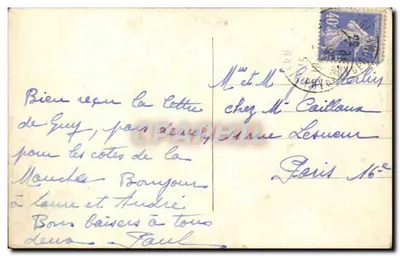 Bien reçu la lettre
de Guy, pars demain
pour les côtes de la
Manche Bonjour
à Laure et André
Bons baisers à tous
deux Paul
Mme et Mr Guy
chez Mr Caillaux
rue Lesueur
Paris 16e
40